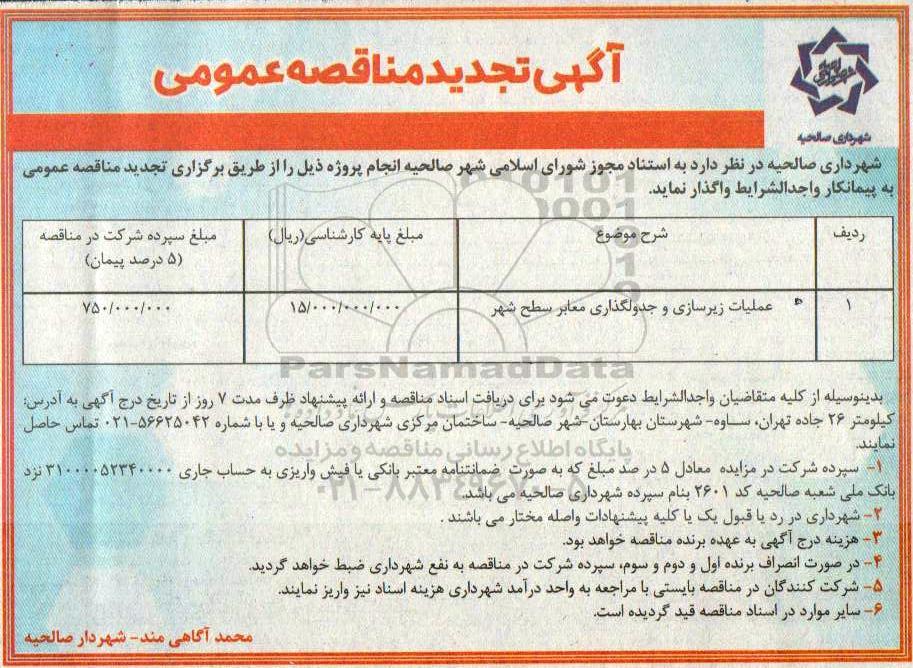 آگهی تجدید مناقصه عمومی
شهرداری صالحیه
شهرداری صالحیه در نظر دارد به استناد مجوز شورای اسلامی شهر صالحیه انجام پروژه ذیل را از طریق برگزاری تجدید مناقصه عمومی
به پیمانکار واجدالشرایط واگذار نماید.
ردیف شرح موضوع مبلغ پایه کارشناسی(ریال) مبلغ سپرده شرکت در مناقصه
(۵ درصد پیمان)
۱ عملیات زیرسازی و جدولگذاری معابر سطح شهر ۱۵/۰۰۰/۰۰۰/۰۰۰ ۷۵۰/۰۰۰/۰۰۰
ParsNamadData
بدینوسیله از کلیه متقاضیان واجدالشرایط دعوت می شود برای دریافت اسناد مناقصه و ارائه پیشنهاد ظرف مدت ۷ روز از تاریخ درج آگهی به آدرس:
کیلومتر ۲۶ جاده تهران، ساوه- شهرستان بهارستان-شهر صالحیه- ساختمان مرکزی شهرداری صالحیه و یا با شماره ۵۶۶۲۵۰۴۲-۰۲۱ تماس حاصل
نمایند.
پایگاه اطلاع رسانی مناقصه و مزایده
۱- سپرده شرکت در مزایده معادل ۵ در صد مبلغ که به صورت ضمانتنامه معتبر بانکی یا فیش واریزی به حساب جاری ۳۱۰۰۰۰۵۲۳۴۰۰۰۰ نزد
بانک ملی شعبه صالحیه کد ۲۶۰۱ بنام سپرده شهرداری صالحیه می باشد.
۲- شهرداری در رد یا قبول یک یا کلیه پیشنهادات واصله مختار می باشند .
۳- هزینه درج آگهی به عهده برنده مناقصه خواهد بود.
۴- در صورت انصراف برنده اول و دوم و سوم، سپرده شرکت در مناقصه به نفع شهرداری ضبط خواهد گردید.
۵- شرکت کنندگان در مناقصه بایستی با مراجعه به واحد درآمد شهرداری هزینه اسناد نیز واریز نمایند.
۶- سایر موارد در اسناد مناقصه قید گردیده است.
محمد آگاهی مند- شهردار صالحیه